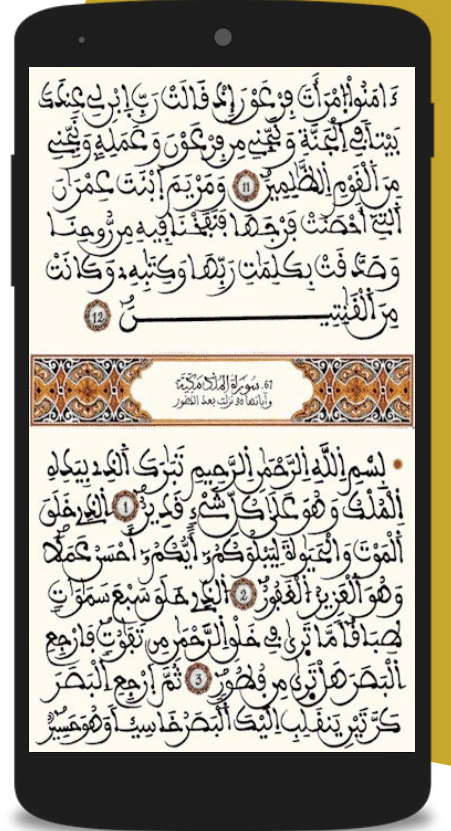 ءَامَنُواْ اُمْرَأَتَ فِرْعَوْنَ إِذْ قَالَتْ رَبِّ اِبْنِ لِے عِندَكَ
بَيْتاً فِے اِلْجَنَّةِ وَنَجِّنِے مِن فِرْعَوْنَ وَعَمَلِهِۦ وَنَجِّنِے
مِنَ اَلْقَوْمِ اِلظَّٰلِمِينَ 11 وَمَرْيَمَ اَبْنَتَ عِمْرَٰنَ
اَلتِےٓ أَحْصَنَتْ فَرْجَهَا فَنَفَخْنَا فِيهِ مِن رُّوحِنَا
وَصَدَّقَتْ بِكَلِمَٰتِ رَبِّهَا وَكِتَٰبِهِۦ وَكَانَتْ
مِنَ اَلْقَٰنِتِينَ 12
67. سورة الملك مكية
وآياتها 30 نزلت بعد الطور
بِسْمِ اِللَّهِ اِلرَّحْمَٰنِ اِلرَّحِيمِ تَبَٰرَكَ اَلذِے بِيَدِهِ
اِلْمُلْكُ وَهُوَ عَلَىٰ كُلِّ شَےْءٍ قَدِيرٌ 1 اِلذِے خَلَقَ
اَلْمَوْتَ وَالْحَيَوٰةَ لِيَبْلُوَكُمُۥٓ أَيُّكُمُۥٓ أَحْسَنُ عَمَلاً
وَهُوَ اَلْعَزِيزُ اُلْغَفُورُ 2 اُلذِے خَلَقَ سَبْعَ سَمَٰوَٰتٍ
طِبَاقاً مَّا تَرَىٰ فِے خَلْقِ اِلرَّحْمَٰنِ مِن تَفَٰوُتٍ فَارْجِعِ
اِلْبَصَرَ هَلْ تَرَىٰ مِن فُطُورٍ 3 ثُمَّ اَرْجِعِ اِلْبَصَرَ
كَرَّتَيْنِ يَنقَلِبِ اِلَيْكَ اَلْبَصَرُ خَاسِئاً وَهُوَ حَسِيرٌ